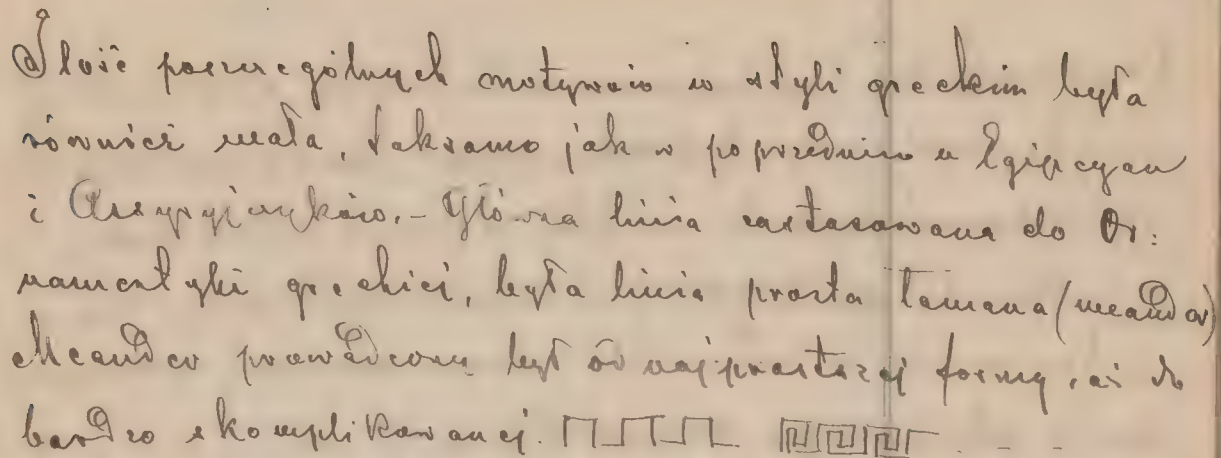 Ilość poszczególnych motywów w styli greckim była
również mała, taksamo jak w poprzednim u Egipcyan
i Assyryjczyków. - Główna linia zastasowana do Or:
namentyki greckiej, była linia prosta łamana (meander)
Meander prowadzony był od najprostszej formy, aż do
bardzo skomplikowanej.